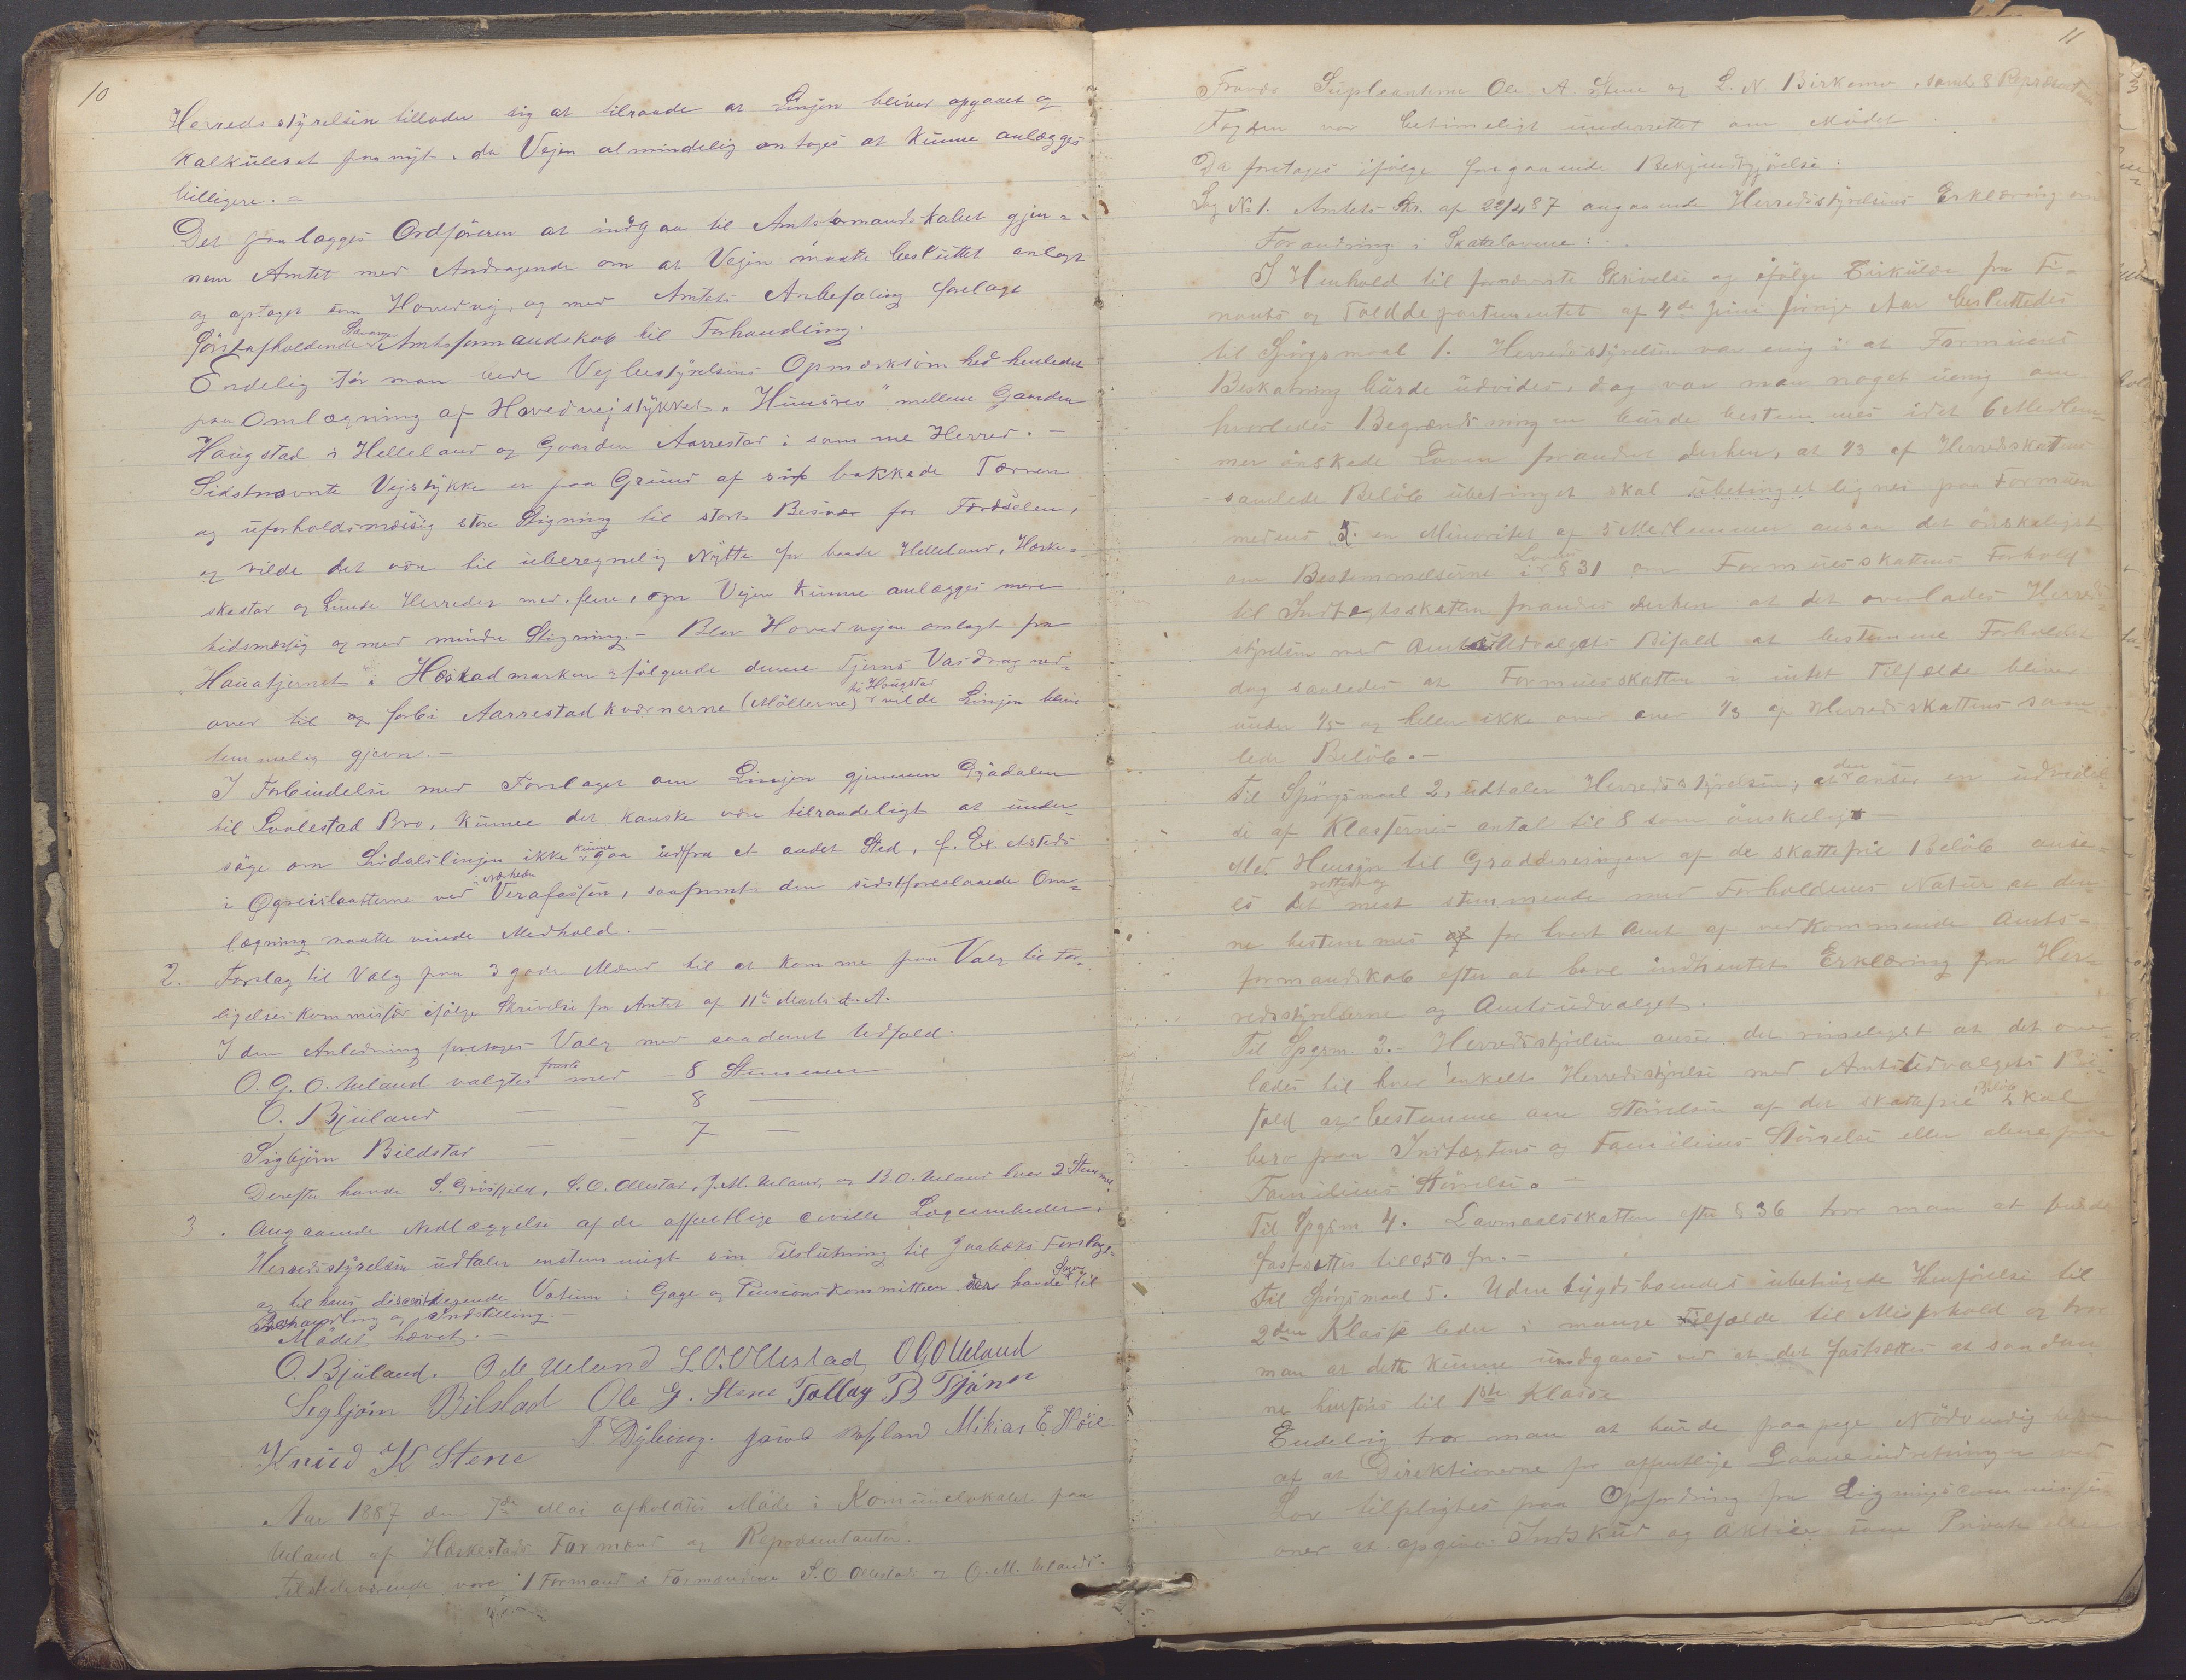 10
Herredsstyrelsen tillader sig at tilraade at Linjen bliver opgaaet og
kalkuleret paa nyt, da Vejen almindelig antages at kunne anlægges
billigere. =
Det paalægges Ordføreren at indgaa til Amtsformandskabet gjen-
nem Amtet med Andragende om at Vejen maatte besluttet anlagt
og optaget som Hovedvej, og med Amtets Anbefaling forelagt
førstafholdende Stavanger Amtsformandskab til Forhandling.
Endelig tør man bede Vejbestyrelsens Opmærksomhed henledet
paa Omlægning af Hovedvejstykket "Hunsrev" mellem Gaarden
Haugstad i Helleland og Gaarden Aarrestad i samme Herred. -
Sidstnævnte Vejstykke er paa Grund af sit bakkede Terræn
og uforholdsmæssig store Stigning til stort Besvær for Færdselen,
og vilde det være til uberegnelig Nytte for baade Helleland, Heske-
skestad og Lunde Herreder med flere, om Vejen kunne anlægges mere
tidsmæssig og med mindre Stigning. - Blev Hovedvejen omlagt fra
"Hauatjernet" i Hæstadmarken følgende denne Tjerns Vasdrag ned-
over til og forbi Aarrestad kværnerne (Møllerne) til Haugstad vilde Linjen blive
temmelig gjevn. -
I Forbindelse med Forslaget om Linjen gjennem Gyadalen
til Svalestad Bro, kunne det kanske være tilraadeligt at under-
søge om Sirdalslinjen ikke kunne gaa udfra et andet Sted, f. Ex. etsteds
i Ogreislaatterne ved i Nærheden Verafossen, saafremt den sidstforeslaaede Om-
lægning maatte vinde Medhold. -
2. Forslag til Valg paa 3 gode Mænd til at komme paa Valg til For-
ligelseskommissær ifølge Skrivelse fra Amtet af 11te Marts d. A.
I den Anledning foretoges Valg med saadant Udfald:
O. G. O. Ueland valgtes første med - 8 Stemmer
O. Bjuland — - 8 —
Sigbjørn Bildstad — - 7 —
Derefter havde S. Grøsfjeld, S. O. Ollestad, J. M. Ueland, og B. O. Ueland hver 2 Stemmer.
3. Angaaende Nedlæggelse af de offentlige civille Lægeembeder.
Herredsstyrelsen udtaler enstemmigt sin Tilslutning til Jaabæks Forslag
og til hans dissenterende Votum i Gage og Pensionskommitteen der havde Sagen til
Behandling og Indstilling.
Mødet hævet. -
O. Bjuland. O M Ueland S. O. Ollestad O G O Ueland
Sigbjørn Bilstad Ole G. Stene Tollag B Tjørn
Knud K Stene T Dybing. Mikias E. Høie
Aar 1887 den 7de Mai afholdtes Møde i Komunelokalet paa
Ueland af Heskestads Formænd og Repræsentanter.
Tilstedeværende vare 1 Formand Formændene S. O Ollestad og O. M. Ueland
11
Fravær Supleanterne Ole. A. Stene og L. N. Birkemo, samt 8 Repræsentanter
Fogden var betimeligt underrettet om Mødet.
Da foretages ifølge foregaaende Bekjendtgjørelse:
Sag No 1. Amtets Skr. af 22/4 87 angaaende Herredsstyrelsens Erklæring om
Forandring i Skattelovene:
I Henhold til fornævnte Skrivelse og ifølge Cirkulære fra Fi-
nants og Tolddepartementet af 4de Juni forrige Aar besluttedes
til Spørgsmaal 1. Herredsstyrelsen var enig i at Formuens
Beskatning burde udvides, dog var man noget uenig om
hvorledes Begrændsningen burde bestemmes idet 6 Medlem-
mer ønskede Loven forandret derhen, at 1/3 af Herredskattens
samlede Beløb ubetinget skal ubetinget lignes paa Formuen
medens en Minoritet af 5 Medlemmer ansaa det ønskeligst
om Bestemmelserne i Lov § 31 om Formuesskattens Forhold
til Indtægtsskatten forandres derhen at det overlades Herreds-
styrelsen med Amtsudvalgets Bifald at bestemme Forholdet
dog saaledes at Formuesskatten i intet Tilfælde bliver
under 1/5 og heller ikke over 1/3 af Herredsskattens sam-
lede Beløb. -
Til Spørgsmaal 2, udtaler Herredsstyrelsen, at den anser en udvidel-
se af Klassernes antal til 8 som ønskeligt -
Med Hensyn til Gradderingen af de skattefrie Beløb anse-
es det rettest og mest stemmende med Forholdenes Natur at den-
ne bestemmes af for hvert Amt af vedkommende Amts-
formandskab efter at have indhentet Erklæring fra Her-
redsstyrelserne og Amtsudvalget.
Til Spgsm. 3. - Herredsstyrelsen anser det rimeligst at det over-
lades til hver enkelt Herredsstyrelse med Amtsudvalgets Bi-
fald at bestemme om Størrelsen af det skattefrie Beløb skal
bero paa Indtægtens og Familiens Størrelse eller alene paa
Familiens Størrelse. -
Til Spgsm 4. Lavmaalsskatten efter § 36 tror man at burde
fastsættes til 0,50 Kr. -
Til Spørgsmaal 5. Udenbygdsboendes ubetingede Henførelse til
2den Klasse leder i mange Tilfælde til Misforhold og tror
man at dette kunne undgaaes ved at det fastsættes at saadan-
ne henføres til 1ste Klasse
Endelig tror man at burde paapege Nødvendigheden
af at Direktionerne for offentlige Laaneindretninger ved
Lov tilpligtes paa Opfordring fra Ligningscommissi-
oner at opgive Indskud og Aktier som Private eller